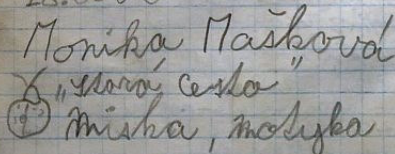 Monika Mašková
"Stará cesta"
miska, motyka